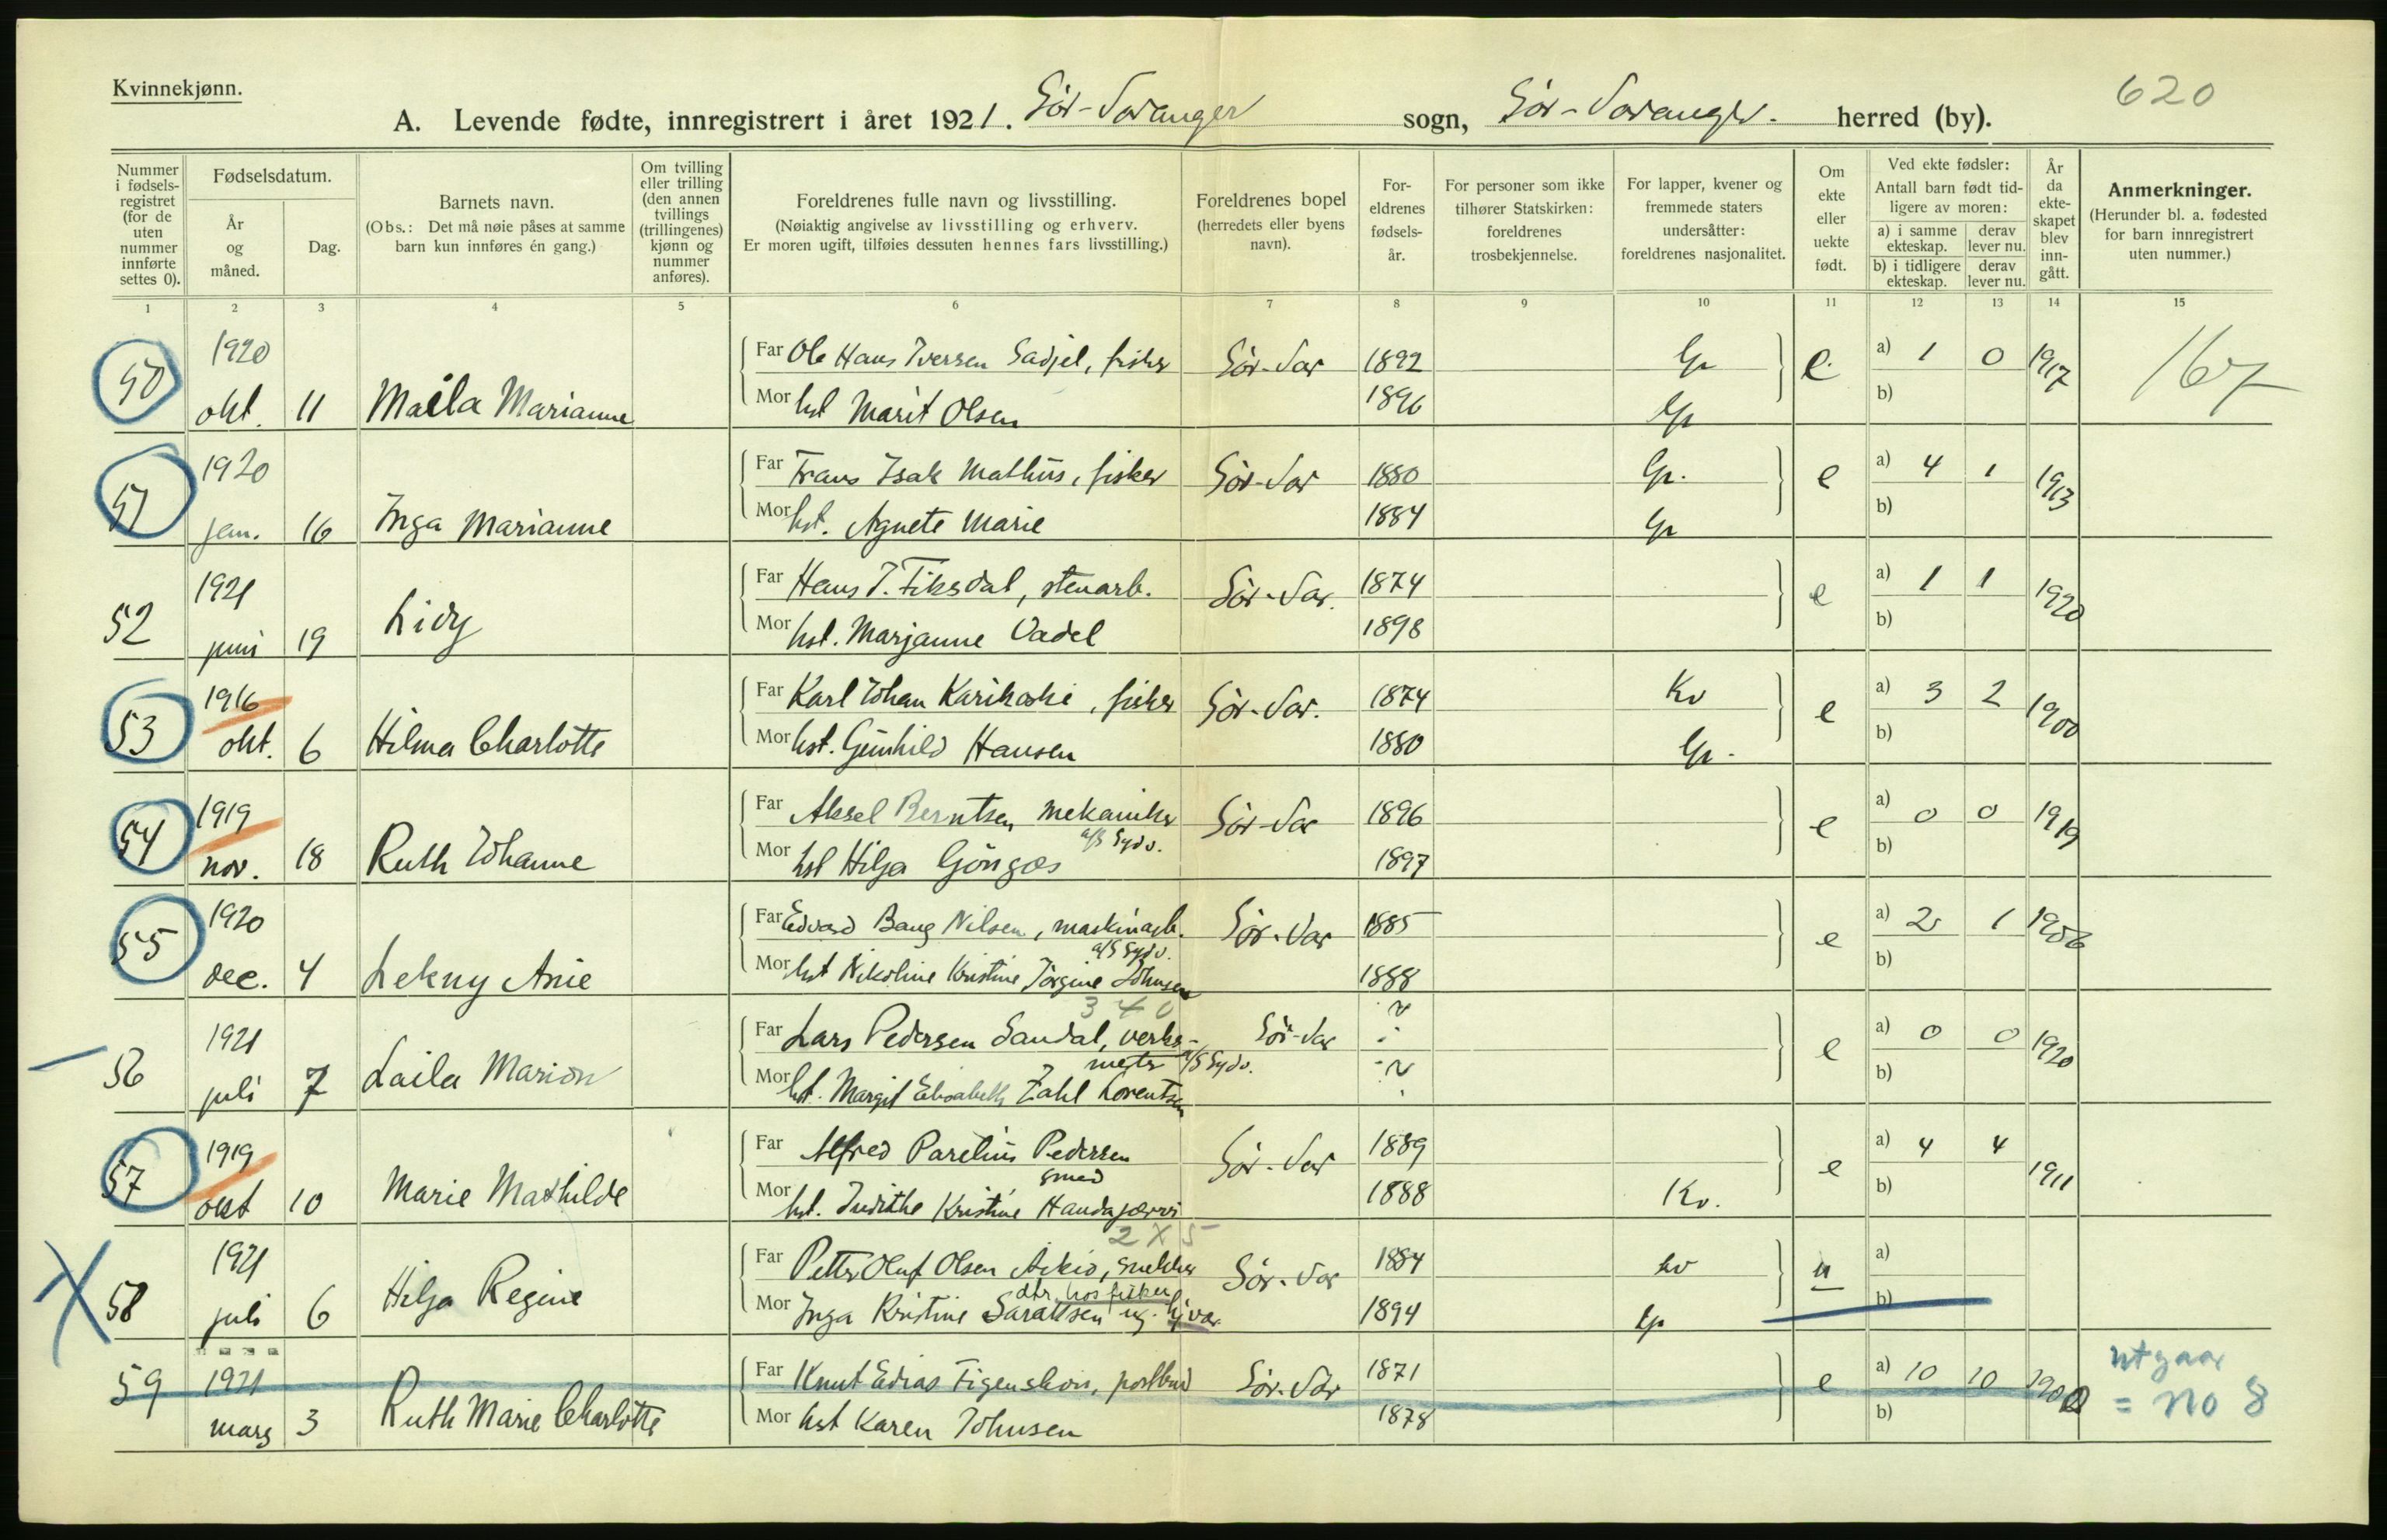 Kvinnekjønn.
620
A. Levende fødte, innregistrert i året 1921. Sør-Varanger sogn, Sør-Varanger. herred (by).
Nummer i fødselsregistret (for de uten nummer innførte settes 0).
Fødselsdatum.
År og måned.
Dag.
Barnets navn.
(Obs.: Det må nøie påses at samme barn kun innføres én gang.)
Om tvilling eller trilling (den annen tvillings (trillingenes) kjønn og nummer anføres).
Foreldrenes fulle navn og livsstilling.
(Nøiaktig angivelse av livsstilling og erhverv.
Er moren ugift, tilføies dessuten hennes fars livsstilling.)
Foreldrenes bopel
(herredets eller byens navn).
Foreldrenes fødselsår.
For personer som ikke tilhører Statskirken: foreldrenes trosbekjennelse.
For lapper, kvener og fremmede staters undersåtter: foreldrenes nasjonalitet.
Om ekte eller uekte født.
Ved ekte fødsler:
Antall barn født tidligere av moren:
a) i samme ekteskap.
derav lever nu.
b) i tidligere ekteskap.
derav lever nu.
År da ekteskapet blev inngått.
Anmerkninger.
(Herunder bl. a. fødested for barn innregistrert uten nummer.)
1 2 3 4 5 6 7 8 9 10 11 12 13 14 15
50 1920 okt. 11 Maila Marianne
Far Ole Hans Iversen Sadjel, fisker Sör-Var 1892 Lp e a) 1 0 1917 167
Mor hst Marit Olsen 1896 Lp b)
51 1920 jan. 16 Inga Marianne
Far Frans Isak Mathus, fisker Sör-Var 1880 Lp. e a) 4 1 1913
Mor hst. Agnete Marie 1884 Lp b)
52 1921 juni 19 Lidy
Far Hans T. Fiksdal, stenarb. Sör-Var. 1874 e a) 1 1 1920
Mor hst. Marjanne Vadel 1898 b)
53 1916 okt. 6 Hilma Charlotte
Far Karl Johan Karikoski, fisker Sör-Var. 1874 Kv e a) 3 2 1900
Mor hst. Gunhild Hansen 1880 Lp. b)
54 1919 nov. 18 Ruth Johanne
Far Aksel Berntsen mekaniker Sör-Var 1896 e a) 0 0 1919
a/S Sydv.
Mor hst Hilja Göngos 1897 b)
55 1920 dec. 4 Lekny Anie
Far Edvard Bang Nilsen, maskinarb. Sör-Var 1885 e a) 2 1
a/S Sydv.
Mor hst Nikoline Kristine Jörgine Johnsen 1888 b)
3 4 0
56 1921 juli 7 Laila Marion
Far Lars Pedersen Sandal, verks- Sör-Var ? e a) 0 0 1920
mester a/S Sydv.
Mor hst. Margit Elisabeth Zahl Lorentsen ? b)
57 1919 okt 10 Marie Mathilde
Far Alfred Parelius Pedersen Sör-Var 1889 e a) 4 4 1911
smed
Mor hst. Judithe Kristine Handajærvi 1888 Kv. b)
2 X 5
X 58 1921 juli 6 Hilja Regine
Far Petter Oluf Olsen Aikio, snekker Sör-Var 1884 kv u a)
dtr. hos fisker
Mor Inga Kristine Saraksen ug. 1894 Lp b)
59 1921 mars 3 Ruth Marie Charlotte
Far Knut Edias Figenskou, postbud Sör-Var 1871 e a) 10 10 1900 utgaar
Mor hst Karen Johnsen 1878 b) = no 8